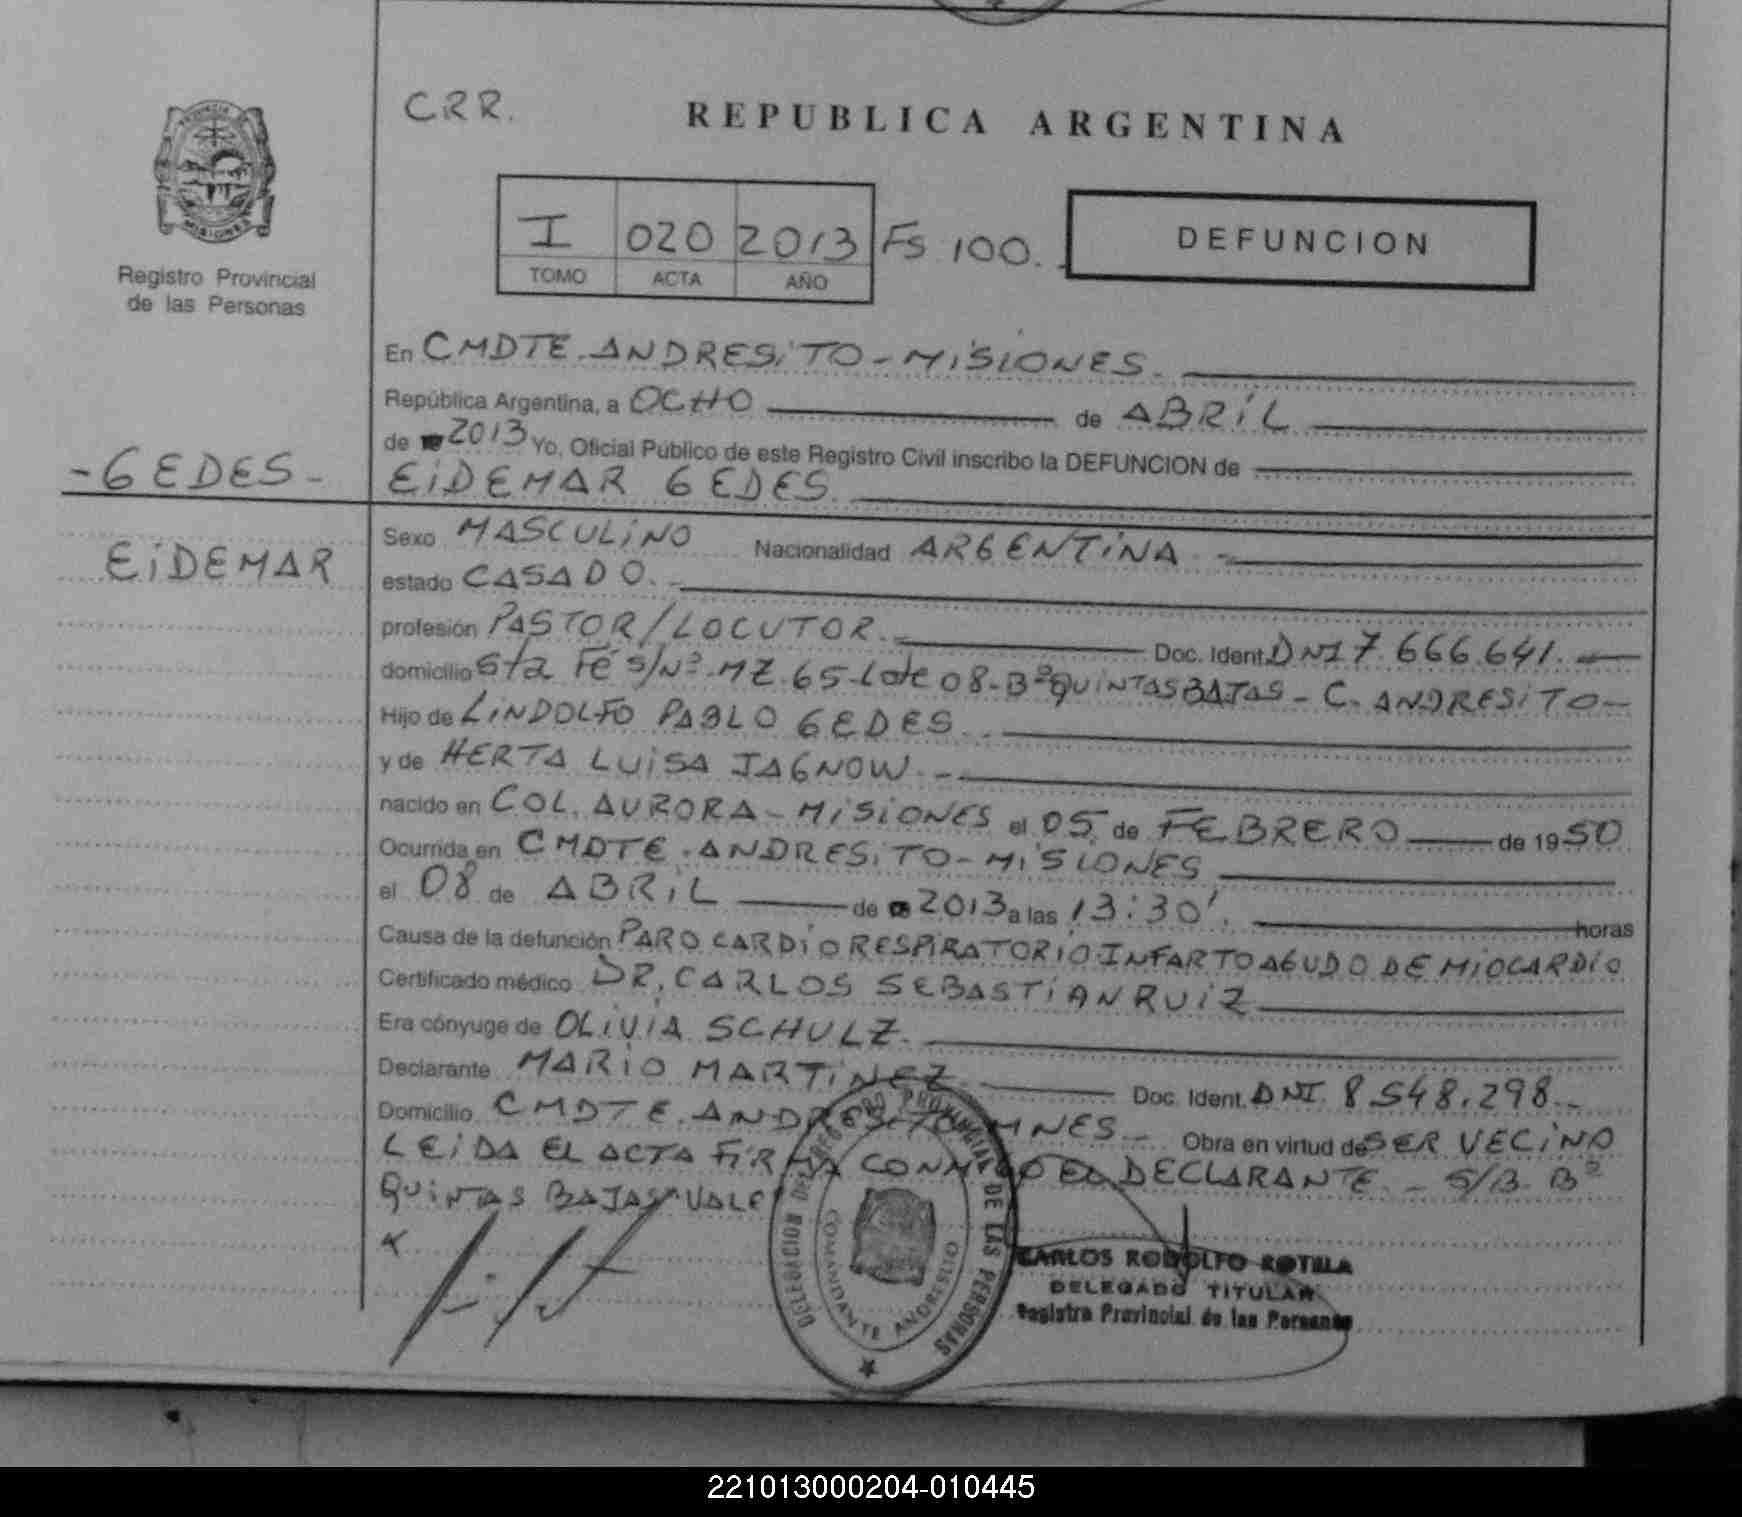 CRR.
REPUBLICA ARGENTINA
PROVINCIA
MISIONES
Registro Provincial
de las Personas
I 020 2013 Fs 100.
TOMO ACTA AÑO
DEFUNCION
En CMDTE. ANDRESiTO - MiSiONES.
República Argentina, a OCHO de ABRiL
de 2013 Yo, Oficial Público de este Registro Civil inscribo la DEFUNCION de
- GEDES -
EiDEMAR GEDES.
EiDEMAR
Sexo MASCULiNO Nacionalidad ARGENTiNA -
estado CASADO. -
profesión PASTOR/LOCUTOR. Doc. Ident. DNI 7.666.641.
domicilio Sta Fé S/Nº. MZ. 65-Lote 08-Bº QUiNTAS BAJAS - C. ANDRESiTO -
Hijo de LiNDOLFO PABLO GEDES.
y de HERTA LUiSA JAGNOW. -
nacido en COL. AURORA - MiSiONES el 05 de FEBRERO de 1950
Ocurrida en CMDTE. ANDRESiTO - MiSiONES
el 08 de ABRiL de 2013 a las 13:30'. horas
Causa de la defunción PARO CARDiORESPiRATORiO INFARTO AGUDO DE MiOCARDiO
Certificado médico DR. CARLOS SEBASTiAN RUiZ
Era cónyuge de OLiViA SCHULZ.
Declarante MARiO MARTiNEZ Doc. Ident. DNI. 8.548.298.
Domicilio CMDTE. ANDRESiTO MNES. Obra en virtud de SER VECiNO
LEiDA EL ACTA FiRMA CONMiGO EL DECLARANTE. - S/B. Bº
QUiNTAS BAJAS "VALE"
DELEGACION DEL REGISTRO PROVINCIAL DE LAS PERSONAS
COMANDANTE ANDRESITO
CARLOS RODOLFO ROTELA
DELEGADO TITULAR
Registro Provincial de las Personas
221013000204-010445